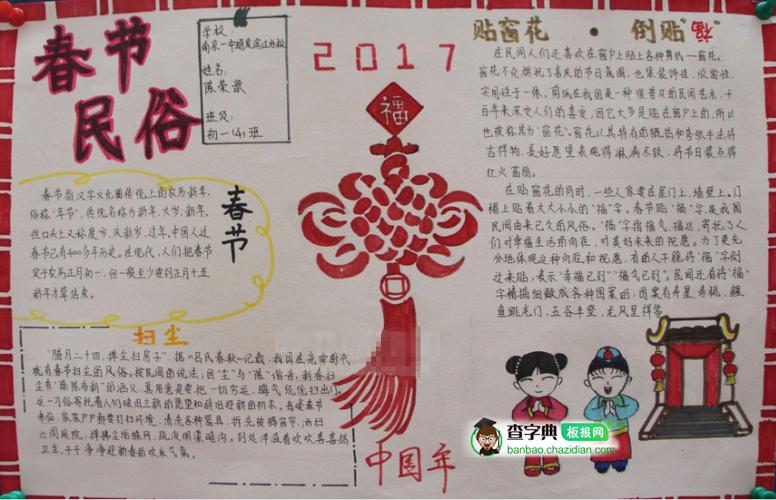 春节
民俗
学校:
南京一中明发滨江分校
姓名:
陈荣歆
班级:
初一(4)班
2017
福
贴窗花 · 倒贴"福"
在民间人们还喜欢在窗户上贴上各种剪纸—窗花。
窗花不仅烘托了喜庆的节日氛围,也集装饰性、欣赏性、
实用性于一体。剪纸在我国是一种很普及的民间艺术,千
百年来深受人们的喜爱,因它大多是贴在窗户上的,所以
也被称其为"窗花"。窗花以其特有的概括和夸张手法将
吉祥物、美好愿望表现得淋漓尽致,将节日装点得
红火富丽。
在贴窗花的同时,一些人家要在屋门上、墙壁上、门
楣上贴着大大小小的"福"字。春节贴"福"字,是我国
民间由来已久的风俗。"福"字指福气、福运,寄托了人
们对幸福生活的向往,对美好未来的祝愿。为了更充
分地体现这种向往和祝愿,有的人干脆将"福"字倒
过来贴,表示"幸福已到""福气已到"。民间还有将"福"
字精描细做成各种图案的,图案有寿星、寿桃、鲤
鱼跳龙门、五谷丰登、龙凤呈祥等
春节
春节指汉字文化圈传统上的农历新年,
俗称"年节",传统名称为新年、大岁、新年,
但口头上又称度岁、庆新岁、过年,中国人过
春节已有4000多年历史。在现代,人们把春节
定于农历正月初一,但一般至少要到正月十五
新年才算结束。
扫尘
"腊月二十四,掸尘扫房子",据《吕氏春秋》记载,我国在尧舜时代
就有春节扫尘的风俗。按民间的说法:因"尘"与"陈"谐音,新春扫
尘有"除陈布新"的涵义,其用意是要把一切穷运、晦气统统扫出门。
这一习俗寄托着人们破旧立新的愿望和辞旧迎新的祈求。每逢春节
来临,家家户户都要打扫环境,清洗各种器具,拆洗被褥窗帘,洒扫
六闾庭院,掸拂尘垢蛛网,疏浚明渠暗沟。到处洋溢着欢欢喜喜搞
卫生、干干净净迎新春的欢乐气氛。
中国年
查字典 板报网
banbao.chazidian.com